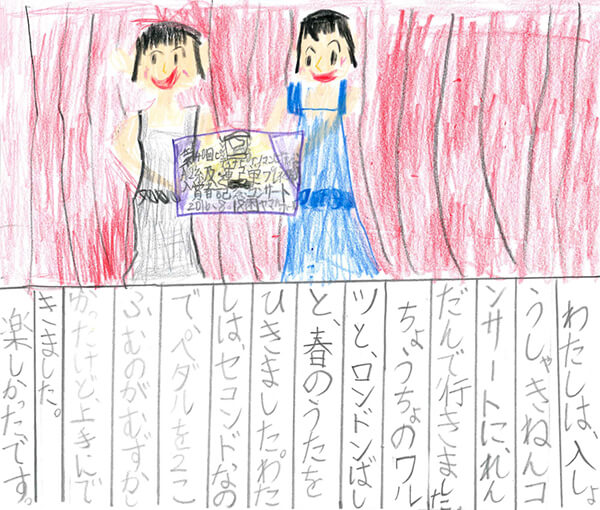 第40回
級重奏
入賞者記念コンサート
わたしは、入しょ
うしゃきねんコ
ンサートに、れん
だんで行きました。
ちょうちょのワル
ツと、ロンドンばし
と、春のうたを
ひきました。わた
しは、セコンドなの
で、ペダルを2こ
ふむのがむずかし
かったけど、上手にで
きました。
楽しかったです。